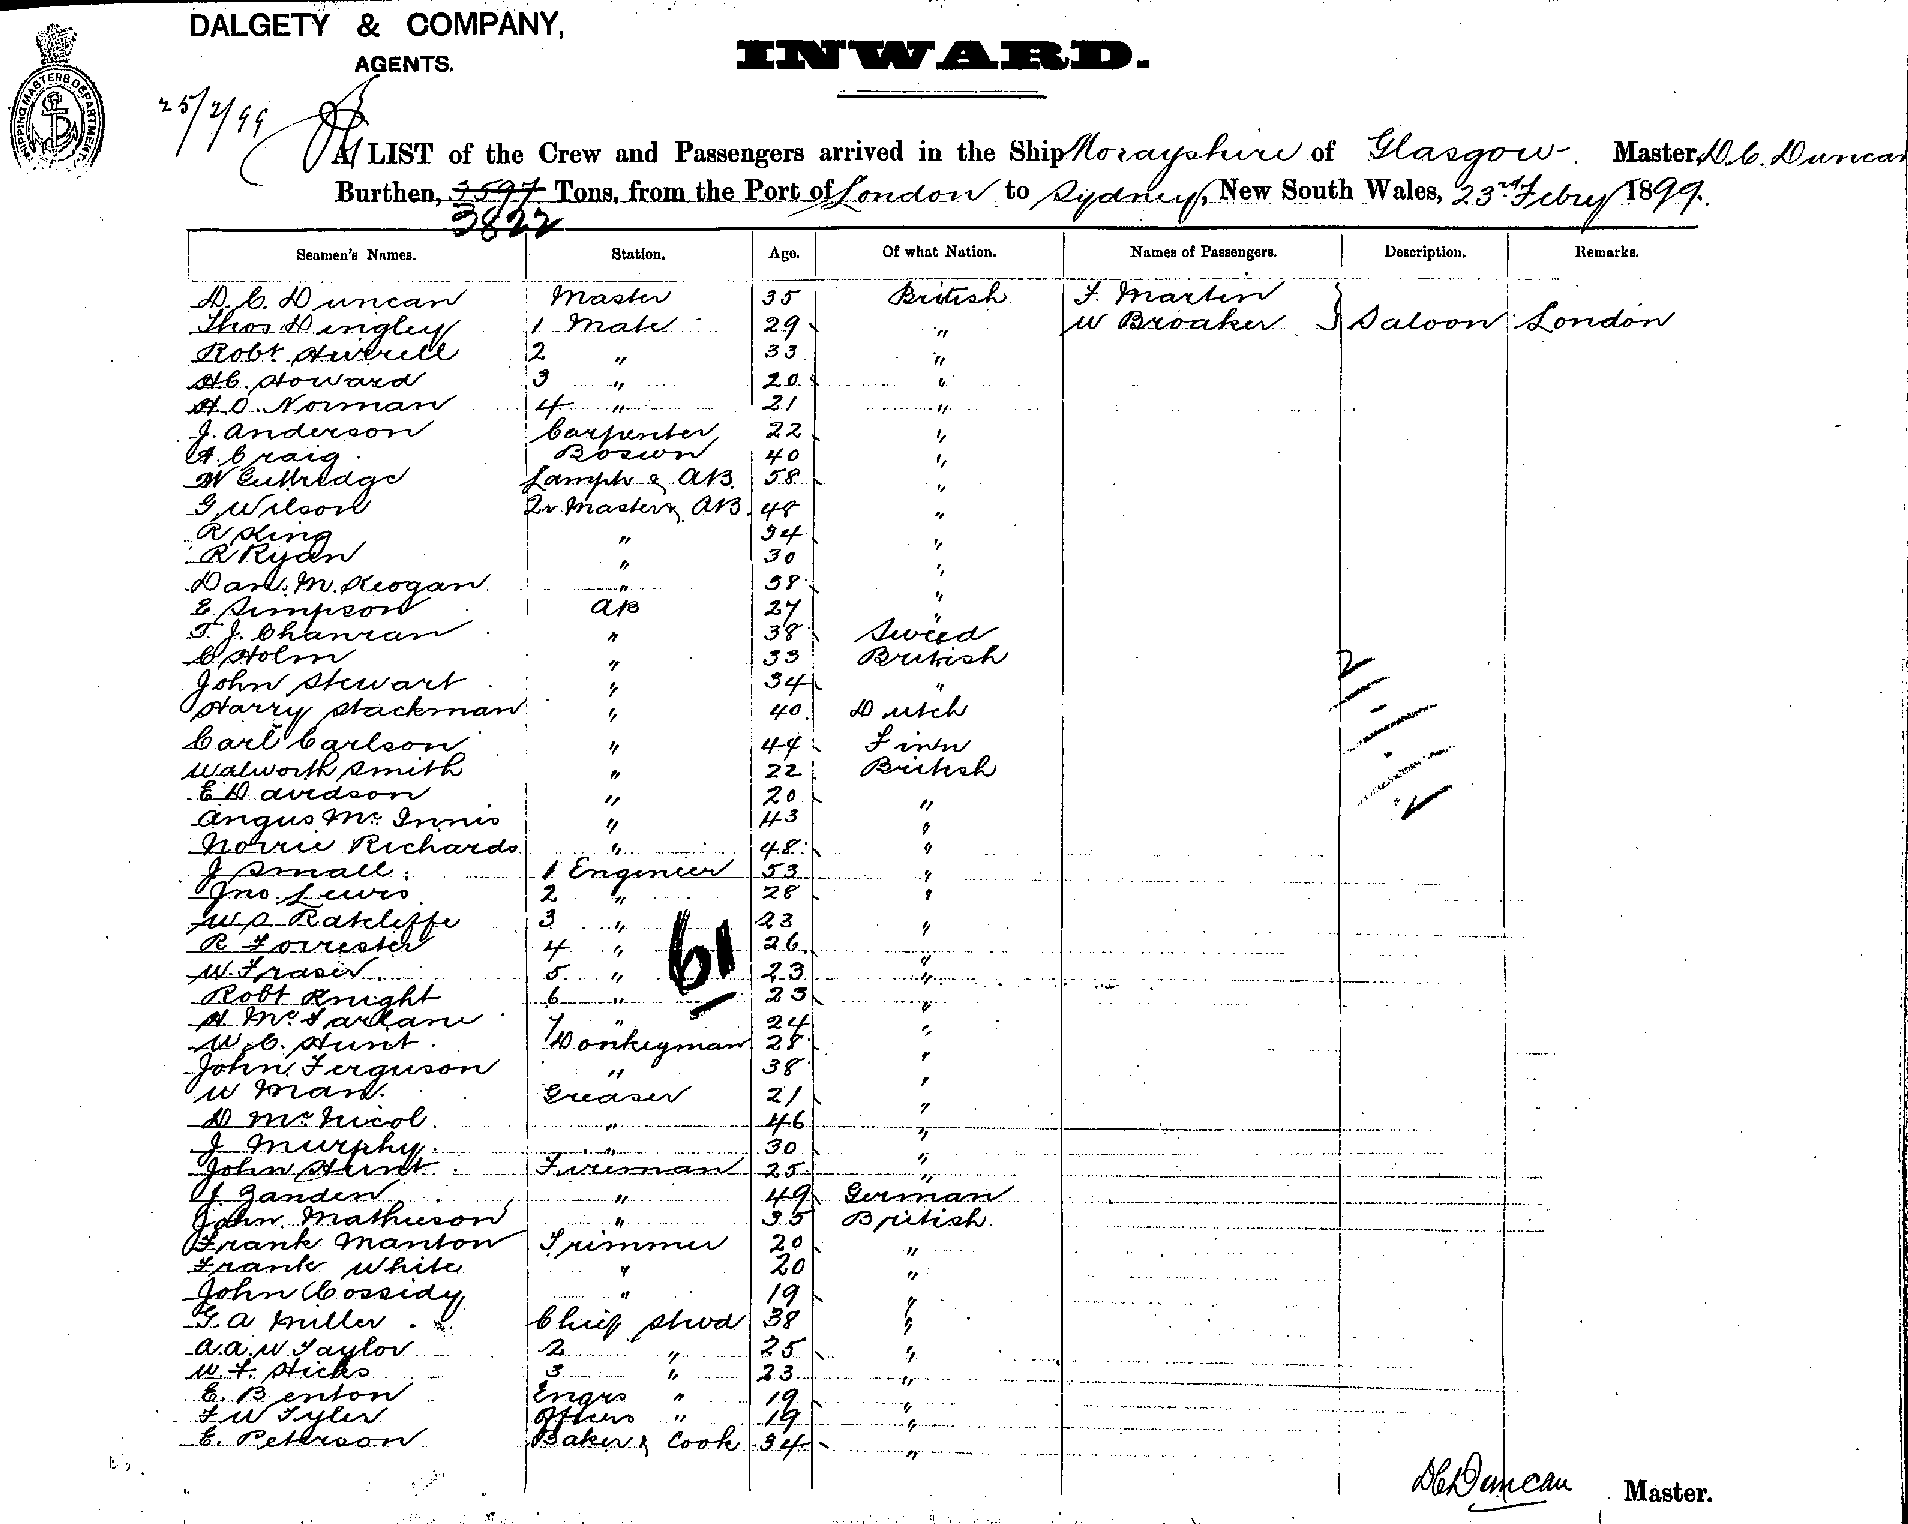 DALGETY & COMPANY,
AGENTS.
INWARD.
SHIPPING MASTERS DEPARTMENT
25/2/99
A LIST of the Crew and Passengers arrived in the Ship Morayshire of Glasgow. Master, D. C. Duncan
Burthen, 7597 Tons, from the Port of London to Sydney, New South Wales, 23rd Febry 1899.
3822
Seamen's Names. Station. Age. Of what Nation. Names of Passengers. Description. Remarks.
D. C. Duncan Master 35 British F. Martin
Thos Dingley 1 Mate 29 " W Broaker } Saloon London
Robt Hurrell 2 " 33 "
H C. Howard 3 " 20 "
H O. Norman 4 " 21 "
J. Anderson Carpenter 22 "
A Craig. Boswn 40 "
W Guttredge Lamps & AB. 58 "
G Wilson Qr Master & AB. 48 "
R King " 34 "
R Ryan " 30 "
Dan. M. Keogan " 38 "
E Simpson AB 27 "
T. J. Chanran " 38 Sweed
C Holm " 33 British
John Stewart " 34 "
Harry Stackman " 40 Dutch
Carl Carlson " 44 Finn
Walworth Smith " 22 British
E Davidson " 20 "
Angus Mc Innis " 43 "
Norrie Richards " 48 "
J Small. 1 Engineer 53 "
Jno. Lewis 2 " 28 "
W S Ratcliffe 3 " 23 "
R Forrester 4 " 26 "
W. Fraser 5 " 23 "
61
Robt Knight 6 " 23 "
A McFarlane 7 " 24 "
W. C. Hunt. Donkeyman 28 "
John Ferguson " 38 "
W Man. Greaser 21 "
D McNicol. " 46 "
J Murphy. " 30 "
John Hunt Fireman 25 "
J Zanden " 49 German
John Mathieson " 35 British.
Frank Manton Trimmer 20 "
Frank White " 20 "
John Cossidy " 19 "
G. A Miller. Chief Stwd 38 "
A. A. W Taylor 2 " 25 "
W. F. Hicks 3 " 23 "
E. Benton Engrs " 19 "
F W Tyler Officers " 19 "
E. Peterson Baker & Cook 34 "
D C Duncan Master.